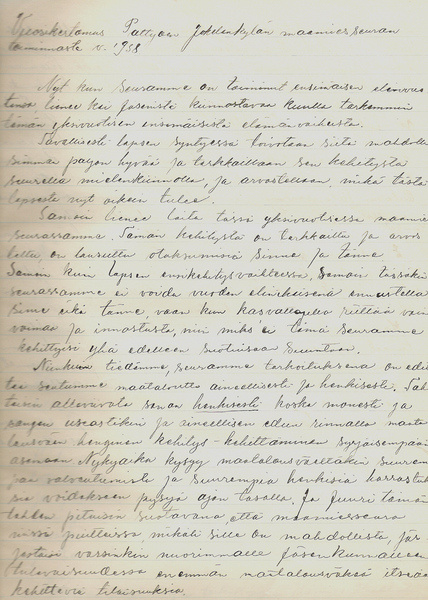 Vuosikertomus Pattjoen Jokelankylän maamiesseuran
toiminnasta v. 19
Nyt kun seuramme on toiminut ensimäisen elinvuo
tensa lienee kai jäsenistä kunnostavaa kuulla tarkemmin
tämän yksvuotisen ensimäisestä elämänvaiheesta.
Tavallisesti lapsen syntyessä toivotaan siitä mahdolli
simman paljon hyvää ja tarkkaillaan sen kehitystä
suurella mielenkiinnolla, ja arvostellaan, mikä tästä
lapsesta nyt oikein tulee.
Samoin lienee laita tässä yksvuotisessa maamies
seurassamme. Tämän kehitystä on tarkkailtu ja arvos
teltu, on lausuttu otaksumisia sinne ja tänne.
Samoin kuin lapsen ensikehitysvaiheessa, samoin tässäkin
seurassamme ei voida vuoden elinikäisenä ennustella
sinne eikä tänne, vaan kun kasvattajilla riittää vain
voimia ja innostusta, niin miks ei tämä seuramme
kehittyisi yhä edelleen suotuisaan suuntaan.
Niinkuin tiedämme, seuramme tarkoituksena on edis
tää seutumme maataloutta aineellisesti ja henkisesti. Tah
toisin alleviivata sanan henkisesti koska monesti ja
sangen useastikin jää aineellisen edun rinnalla maata
lousväen henginen kehitys-kehittäminen syrjäisempään
asemaan. Nykyaika kysyy maatalousväeltäkin suurem
paa valveutumista ja suurempia henkisiä harrastuk
sia voidakseen pysyä ajan tasalla. Ja juuri tämän
tähden pitäisin suotavana että maamiesseura
missä puitteissa mikäli sille on mahdollista, jär
jestäisi varsinkin nuorimmalle jäsenkunnalleen
tulevaisuudessa enemmän maatalousväkeä itseään
kehittäviä tilaisuuksia.